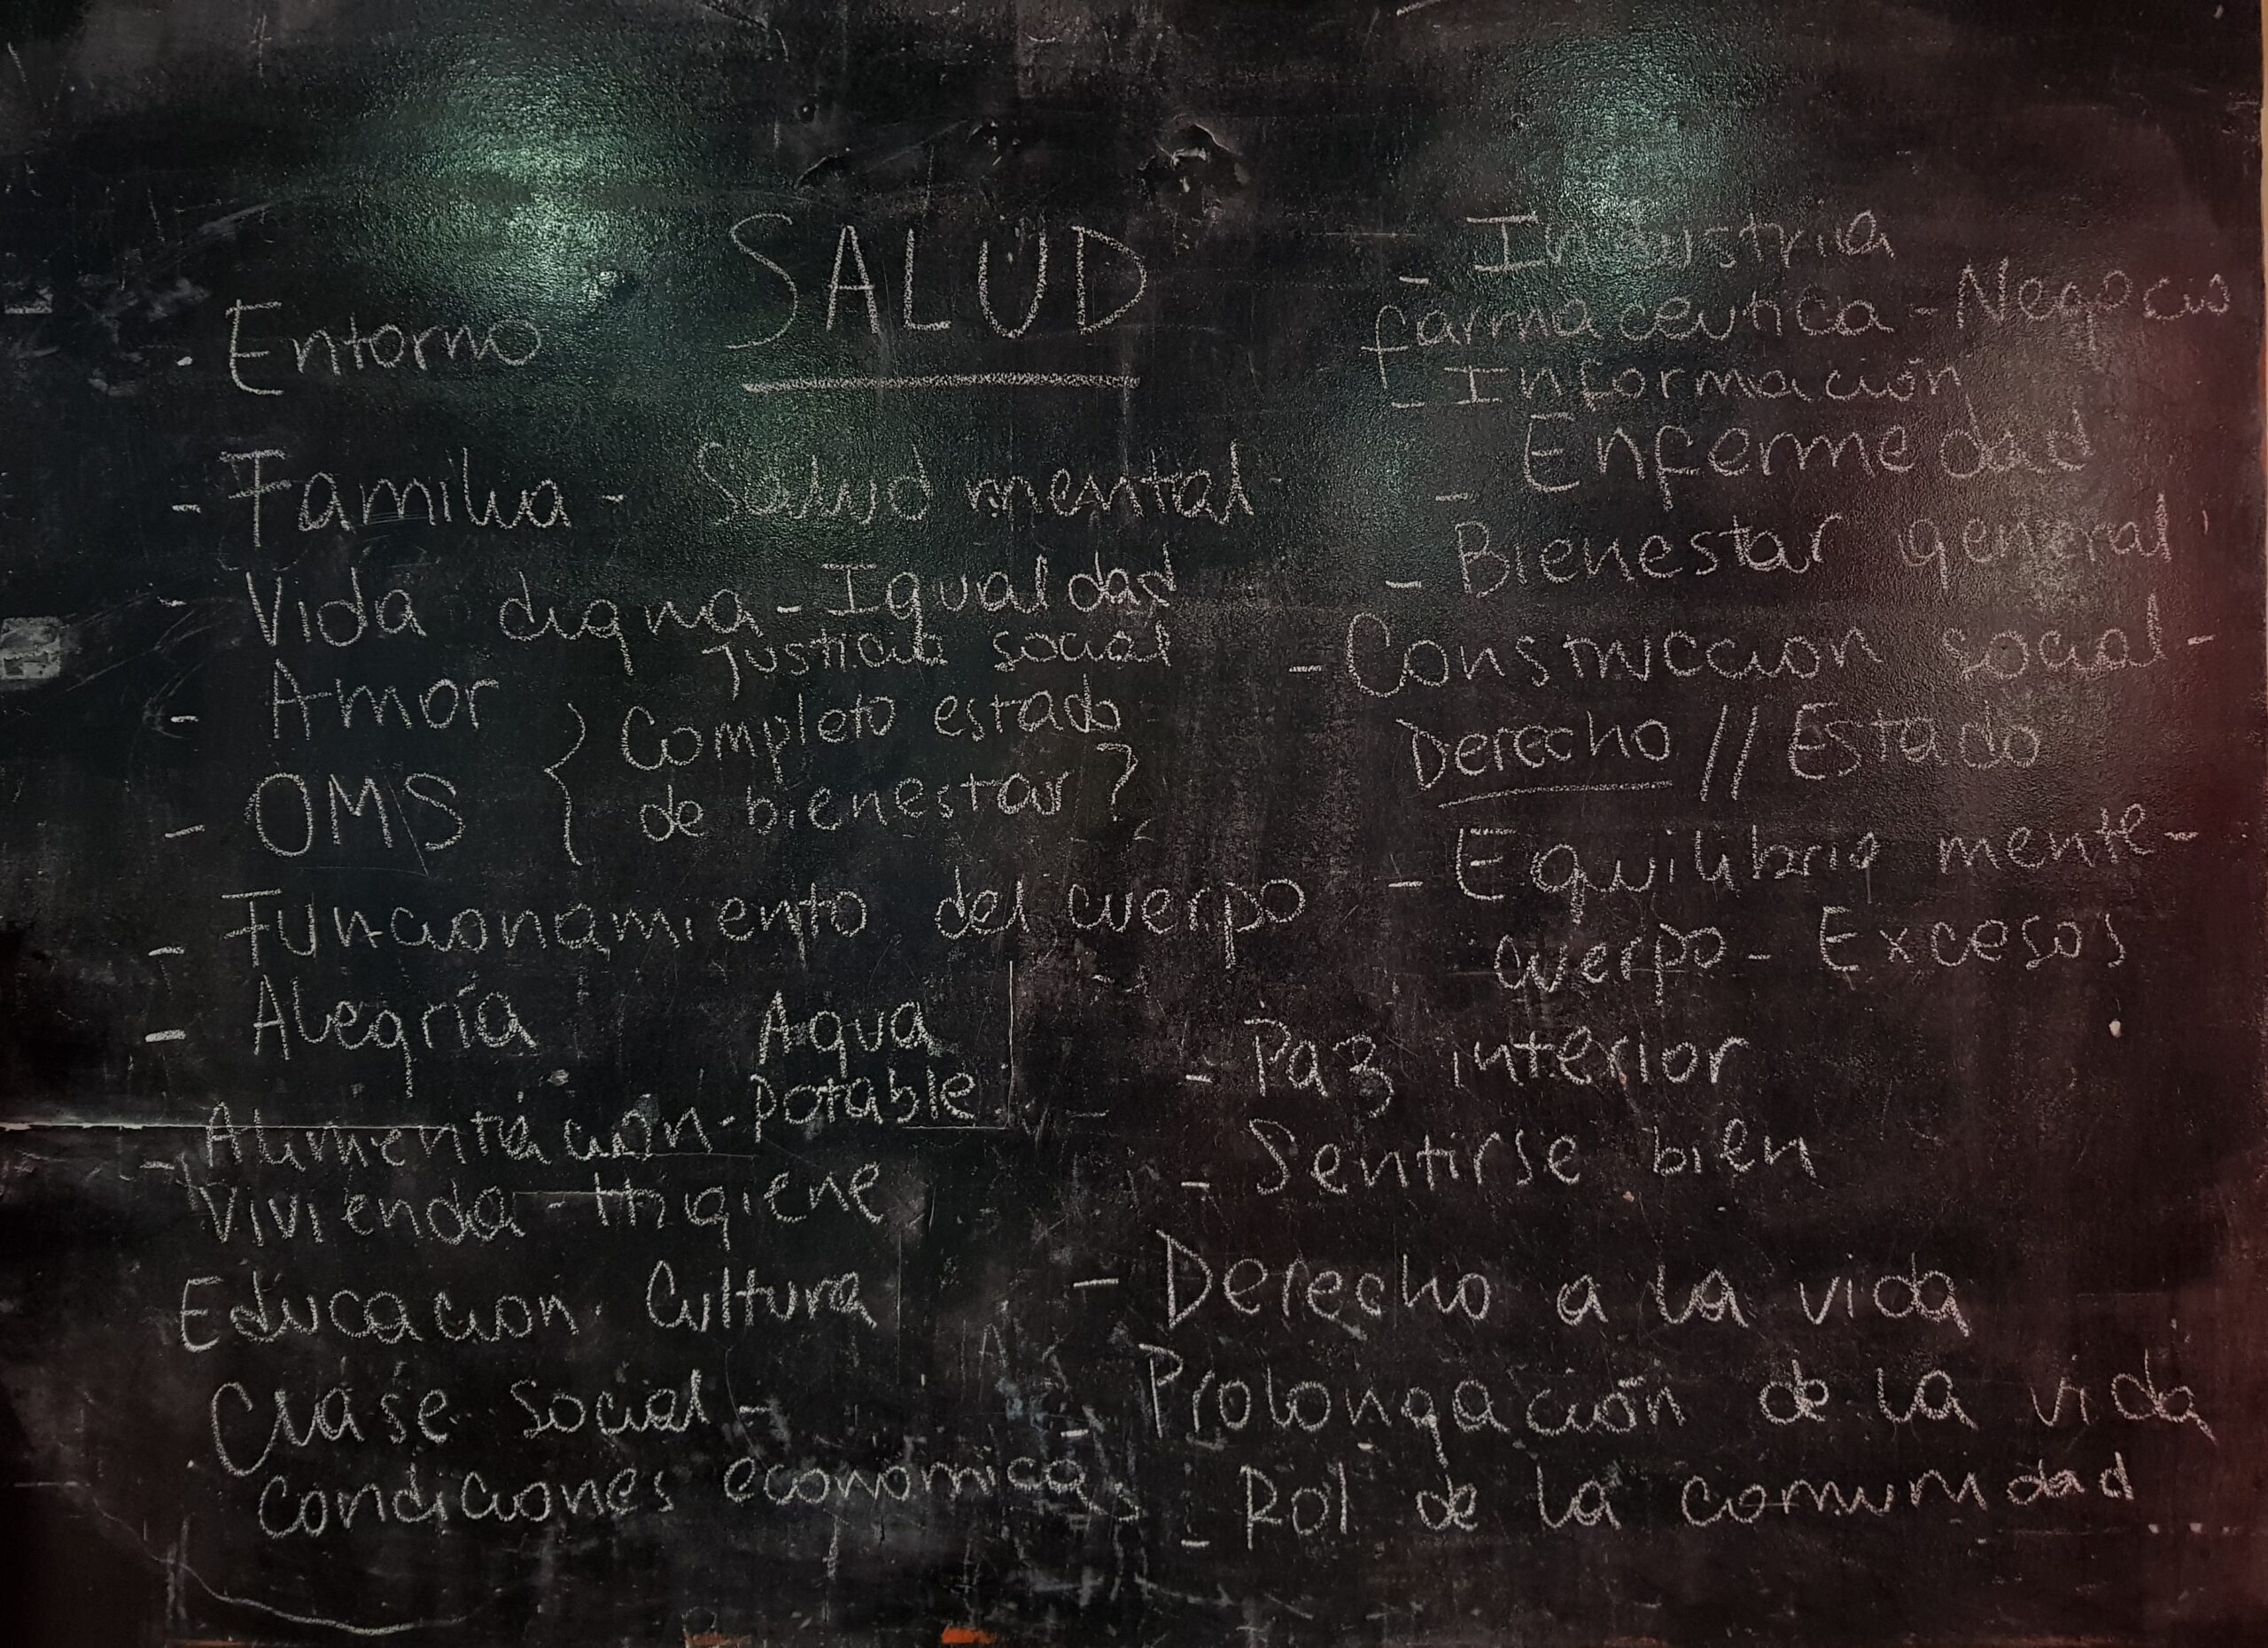 SALUD
· Entorno
- Familia - Salud mental
- Vida digna - Igualdad
justicia social
- Amor
- OMS { Completo estado
de bienestar ?
- Funcionamiento del cuerpo
- Alegría
Agua
- Alimentación - Potable
Vivienda - Higiene
Educacion. Cultura
Clase social -
condiciones económicas
- Industria
farmaceutica - Negocio
- Información
- Enfermedad
- Bienestar general
- Construccion social -
Derecho // Estado
- Equilibrio mente -
cuerpo - Excesos
- Paz interior
- Sentirse bien
- Derecho a la vida
- Prolongación de la vida
- Rol de la comunidad